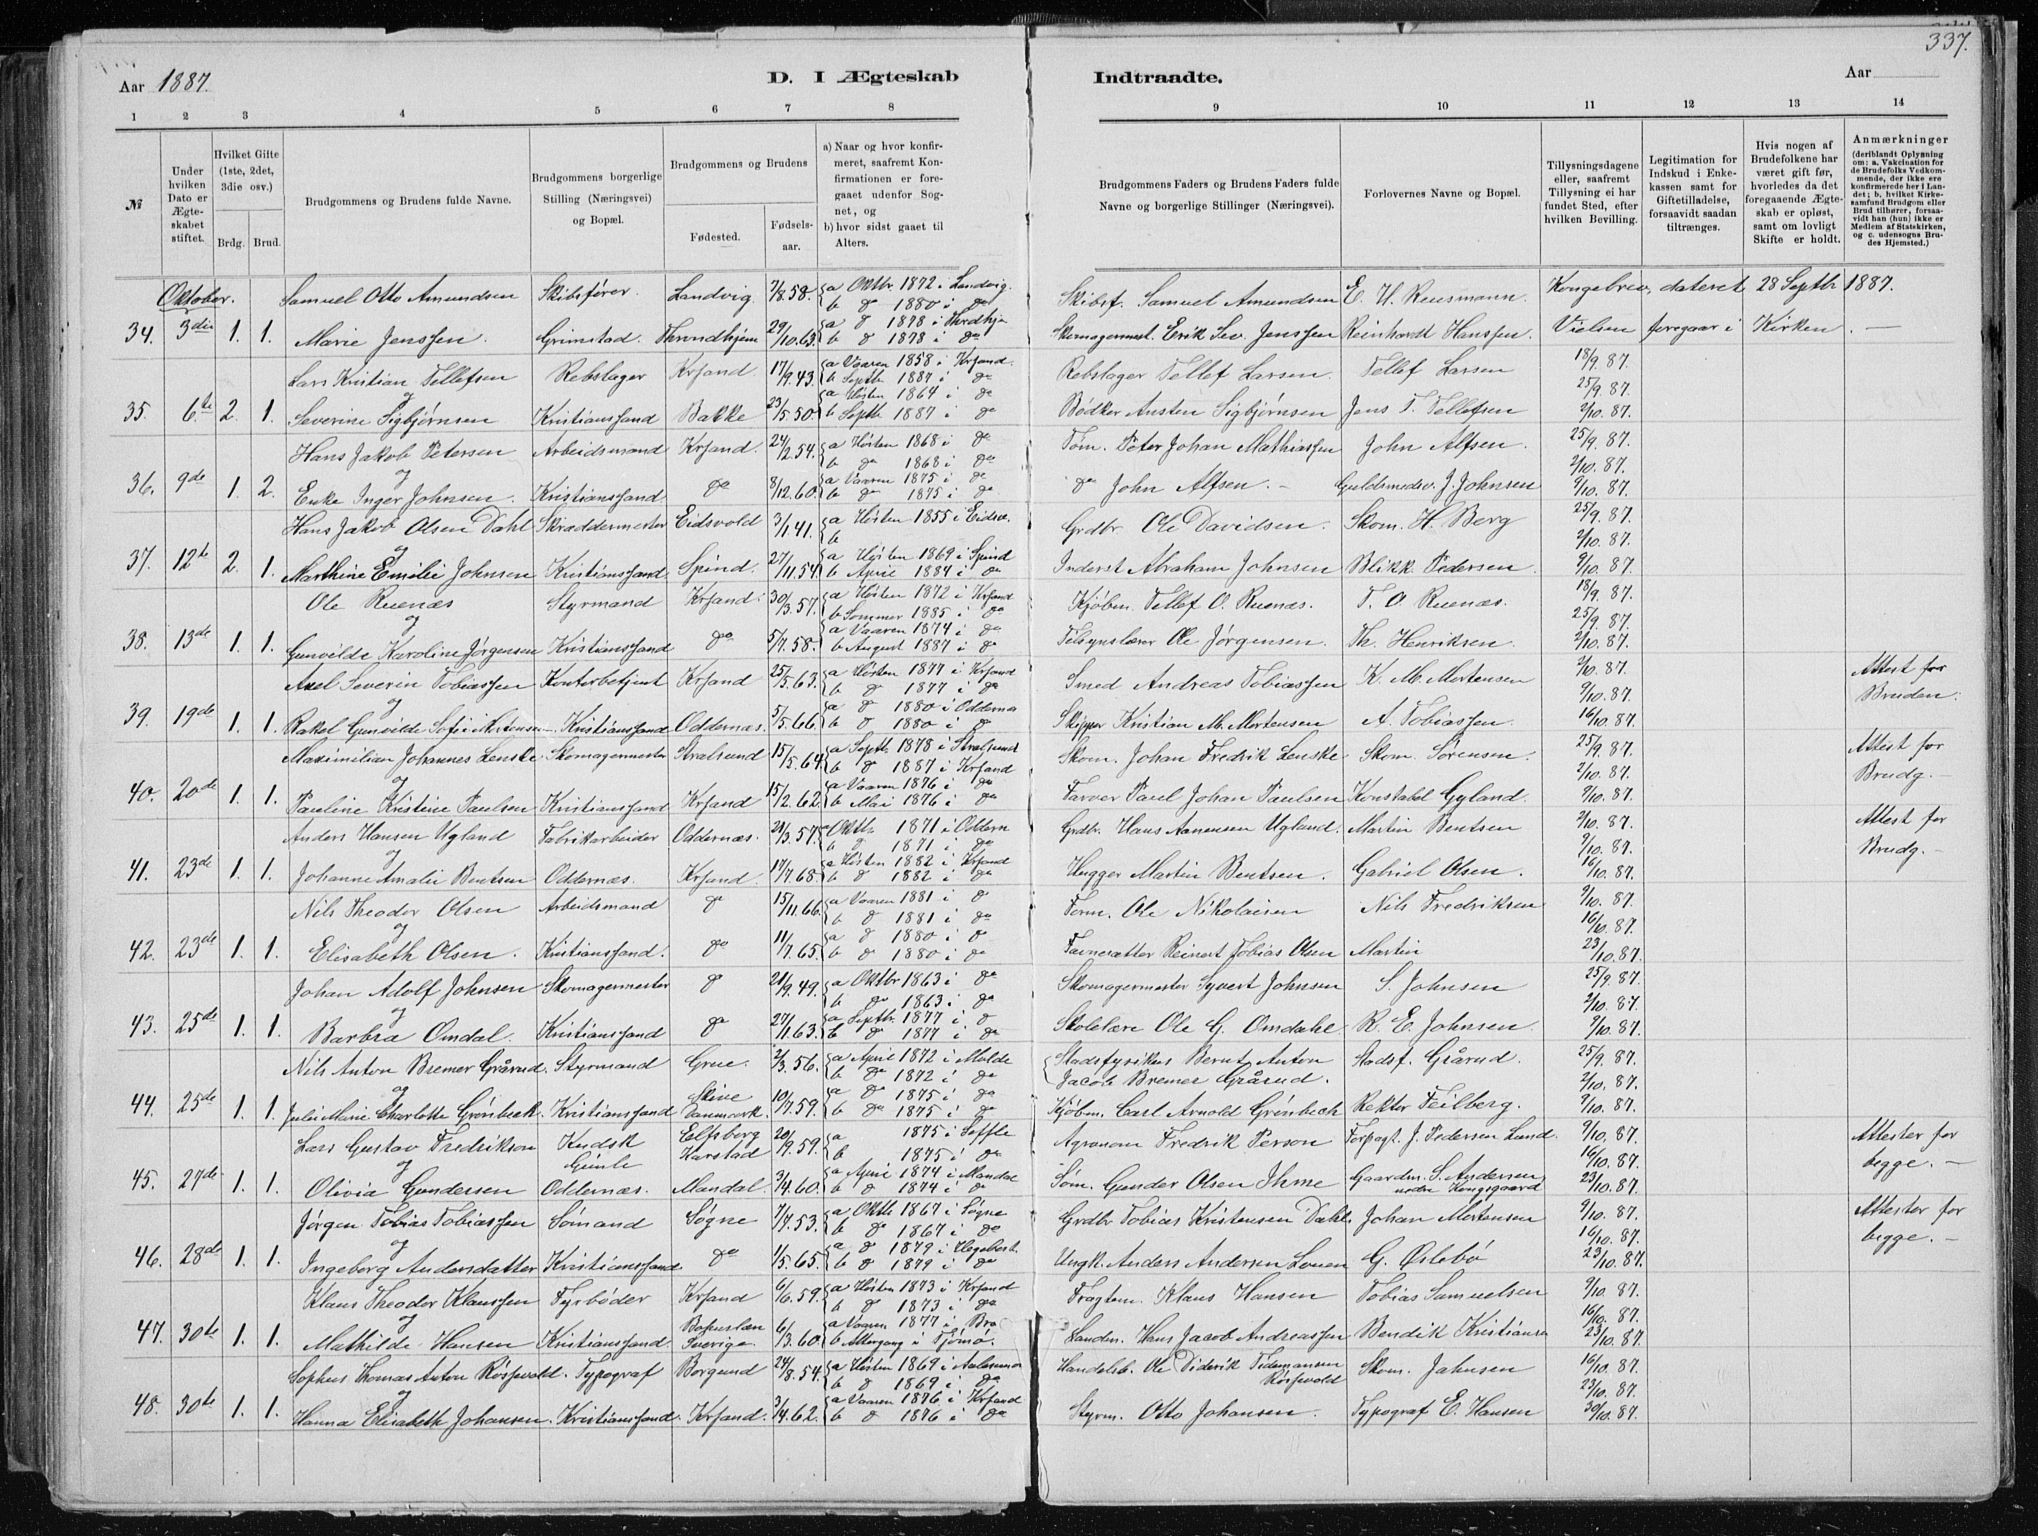 337.
Aar 1887. D. I Ægteskab Indtraadte. Aar
1 2 3 4 5 6 7 8 9 10 11 12 13 14
№
Under hvilken Dato er Ægteskabet stiftet.
Hvilket Gifte (1ste, 2det, 3die osv.)
Brdg. Brud.
Brudgommens og Brudens fulde Navne.
Brudgommens borgerlige Stilling (Næringsvei) og Bopæl.
Brudgommens og Brudens
Fødested. Fødselsaar.
a) Naar og hvor konfirmeret, saafremt Konfirmationen er foregaaet udenfor Sognet, og
b) hvor sidst gaaet til Alters.
Brudgommens Faders og Brudens Faders fulde Navne og borgerlige Stillinger (Næringsvei).
Forlovernes Navne og Bopæl.
Tillysningsdagene eller, saafremt Tillysning ei har fundet Sted, efter hvilken Bevilling.
Legitimation for Indskud i Enkekassen samt for Giftetilladelse, forsaavidt saadan tiltrænges.
Hvis nogen af Brudefolkene har været gift før, hvorledes da det foregaaende Ægteskab er opløst, samt om lovligt Skifte er holdt.
Anmærkninger (deriblandt Oplysning om: a. Vakcination for de Brudefolks Vedkommende, der ikke ere konfirmerede her i Landet; b. hvilket Kirkesamfund Brudgom eller Brud tilhører, forsaavidt han (hun) ikke er Medlem af Statskirken, og c. udensogns Brudes Hjemsted.)
Oktober. Samuel Otto Amundsen Skibsfører. Landvig. 7/8.58. a Oktbr. 1872 i Landvig. b d 1880 i do Skibsf. Samuel Amundsen E. H. Reusmann. Kongebrev, dateret 28 Septbr 1887.
34. 3die 1. 1. Marie Jenssen. Grimstad. Throndhjem 29/10.63. a d 1878 i Thrdhj. b d 1878 i do Skomagermest. Erik Sev. Jenssen Reinhardt Hanssen. Vielsen foregaar i Kirken. —
Lars Kristian Tellefsen Rebslager Krsand. 17/9.43. a Vaaren 1858 i Krsand. b Septbr 1887 i do Rebslager Tellef Larsen. Tellef Larsen 18/9.87. 25/9.87.
35. 6te 2. 1. og Severine Sigbjørnsen Kristianssand Bakke 23/5.50. a Høsten 1864 i do b Septb. 1887 i do Bødker Ansten Sigbjørnsen Jens T. Tellefsen 2/10.87.
Hans Jakob Petersen Arbeidsmand Krsand. 24/2.54. a Høsten 1868 i do b do 1868 i do Tøm. Peter Johan Mathiassen John Alfsen. 25/9.87. 2/10.87.
36. 9de 1. 2. og Enke Inger Johnsen. Kristianssand do 8/12.60. a Vaaren 1875 i do b do 1875 i do do John Alfsen. — Guldsmedsv. J. Johnsen 9/10.87.
Hans Jakob Olsen Dahl Skræddermester Eidsvold 3/1.41. a Høsten 1855 i Eidsv. b Grdbr. Ole Davidsen. Skom. H. Berg 25/9.87. 2/10.87.
37. 12te 2. 1. og Marthine Emilie Johnsen Kristianssand Spind. 27/11.54. a Høsten 1869 i Spind b April 1884 i do Inderst Abraham Johnsen Blikk. Pedersen. 9/10.87.
Ole Ruenæs Styrmand Krsand. 30/3.57. a Høsten 1872 i Krsand b Sommer 1885 i do Kjøbm. Tellef O. Ruenæs. T. O. Ruenæs. 18/9.87. 25/9.87.
38. 13de 1. 1. og Gunvilde Karoline Jørgensen Kristianssand do 5/7.58. a Vaaren 1874 i do b August 1887 i do Tilsynslærer Ole Jørgensen. Th. Henriksen. 2/10.87.
Axel Severin Tobiassen Kontorbetjent Krsand. 25/5.63. a Høsten 1877 i Krsand b d 1877 i do Smed Andreas Tobiassen K. M. Mortensen 2/10.87. 9/10.87. Attest for Bruden.
39. 19de 1. 1. og Rakel Gunvilde Sofie Mortensen Kristianssand Oddernæs. 5/5.66. a d 1880 i Oddernæs b d 1880 i do Skipper Kristian M. Mortensen A. Tobiassen. 16/10.87.
Maximilian Johannes Lenske Skomagermester Stralsund 15/5.64. a Septb 1878 i Stralsund b d 1887 i Krsand Skom. Johan Fredrik Lenske Skom. Sørensen. 25/9.87. 2/10.87. Attest for Brudg. —
40. 20de 1. 1. og Pauline Kristine Paulsen Kristianssand Krsand 15/2.62. a Vaaren 1876 i do b Mai 1876 i do Farver Paul Johan Paulsen Konstabel Gyland. 9/10.87.
Anders Hansen Ugland Fabrikarbeider Oddernæs. 21/3.57. Oktb. 1871 i Oddern b d 1871 i do Grdbr. Hans Aanensen Ugland. Martin Bentsen 2/10.87. 9/10.87. Attest for Brudg. —
41. 23de 1. 1. og Johanne Amalie Bentsen Oddernæs. Krsand. 17/7.68. a Høsten 1882 i Krsand b d 1882 i do Hugger Martin Bentsen. Gabriel Olsen. 16/10.87.
Nils Theodor Olsen Arbeidsmand do 15/11.66. a Vaaren 1881 i d b d 1881 i do Form. Ole Nikolaisen Nils Fredriksen 9/10.87. 16/10.87.
42. 23de 1. 1. og Elisabeth Olsen. Kristianssand. do 11/7.65. a d 1880 i d b d 1880 i do Reinert Tobias Olsen Martin 23/10.87.
Johan Adolf Johnsen Skomagermester d 21/9.49. a Oktbr 1863 i do b do 1863 i do Skomagermester Syvert Johnsen S. Johnsen 25/9.87. 2/10.87.
43. 25de 1. 1. og Barbra Omdal. Kristianssand do 27/1.63. a Septbr. 1877 i d b d 1877 i do Skolelære Ole G. Omdahl R. E. Johnsen. 9/10.87.
Nils Anton Bremer Grårud. Styrmand Grue. 2/3.56. a April 1872 i Molde b do 1872 i do Stadsfysikus Bernt Anton Jacob Bremer Grårud. Stadsf. Grårud. 25/9.87. 2/10.87.
44. 25de 1. 1. og Julie Marie Charlotte Grønbeck. Kristianssand Skive Danmark 10/7.59. a do 1875 i do b do 1875 i do Kjøbm. Carl Arnold Grønbech Rektor Feilberg. 9/10.87.
Lars Gustav Fredrikson Kudsk Gimle Elfsborg Karstad 20/9.59. a 1875 i Seffle b 1875 i do Agronom Fredrik Person Forpagt. J. Pedersen Lund. 9/10.87. 16/10.87. Attester for begge. —
45. 27de 1. 1. og Olivia Gundersen Oddernæs. Mandal. 3/4.60. a April 1874 i Mandal b d 1874 i do Søm. Gunder Olsen Ihme Gaardm. S. Andersen nedre Kongsgaard 23/10.87.
Jørgen Tobias Tobiassen Sømand Søgne 7/7.53. a Oktb 1867 i Søgne b do 1867 i do Grdbr Tobias Kristensen Dahl. Johan Mortensen 9/10.87. 16/10.87. Attester for begge. —
46. 28de 1. 1. og Ingeborg Andersdatter Kristianssand do 1/5.65. a d 1879 i Hegebost. b d 1879 i do Ungk. Anders Andersen Louen G. Øslebø 23/10.87.
Klaus Theodor Klaussen Fyrbøder Krsand 6/6.59. a Høsten 1873 i Krsand b d 1873 i do Fragtem. Klaus Hansen Tobias Samuelsen 9/10.87. 16/10.87.
47. 30te 1. 1. og Mathilde Hansen Kristianssand. Bohuslæn Sverige 6/3.60. a Vaaren 1877 i Bro b Altergang i Tjømø. Landm. Hans Jacob Andreassen Bendik Kristianse 23/10.87.
Sophus Thomas Anton Røssevold. Typograf Borgund 24/8.54. a Høsten 1869 i Aalesund b d 1869 i do Handelsb. Ole Diderik Tidemansen Røssevold Skom. Jahnsen 16/10.87. 23/10.87.
48. 30te 1. 1. og Hanna Elisabeth Johansen. Kristianssand. Krsand. 3/4.62. a Vaaren 1876 i Krsand b d 1876 i do Styrm. Otto Johansen. Typograf E. Hansen 30/10.87.